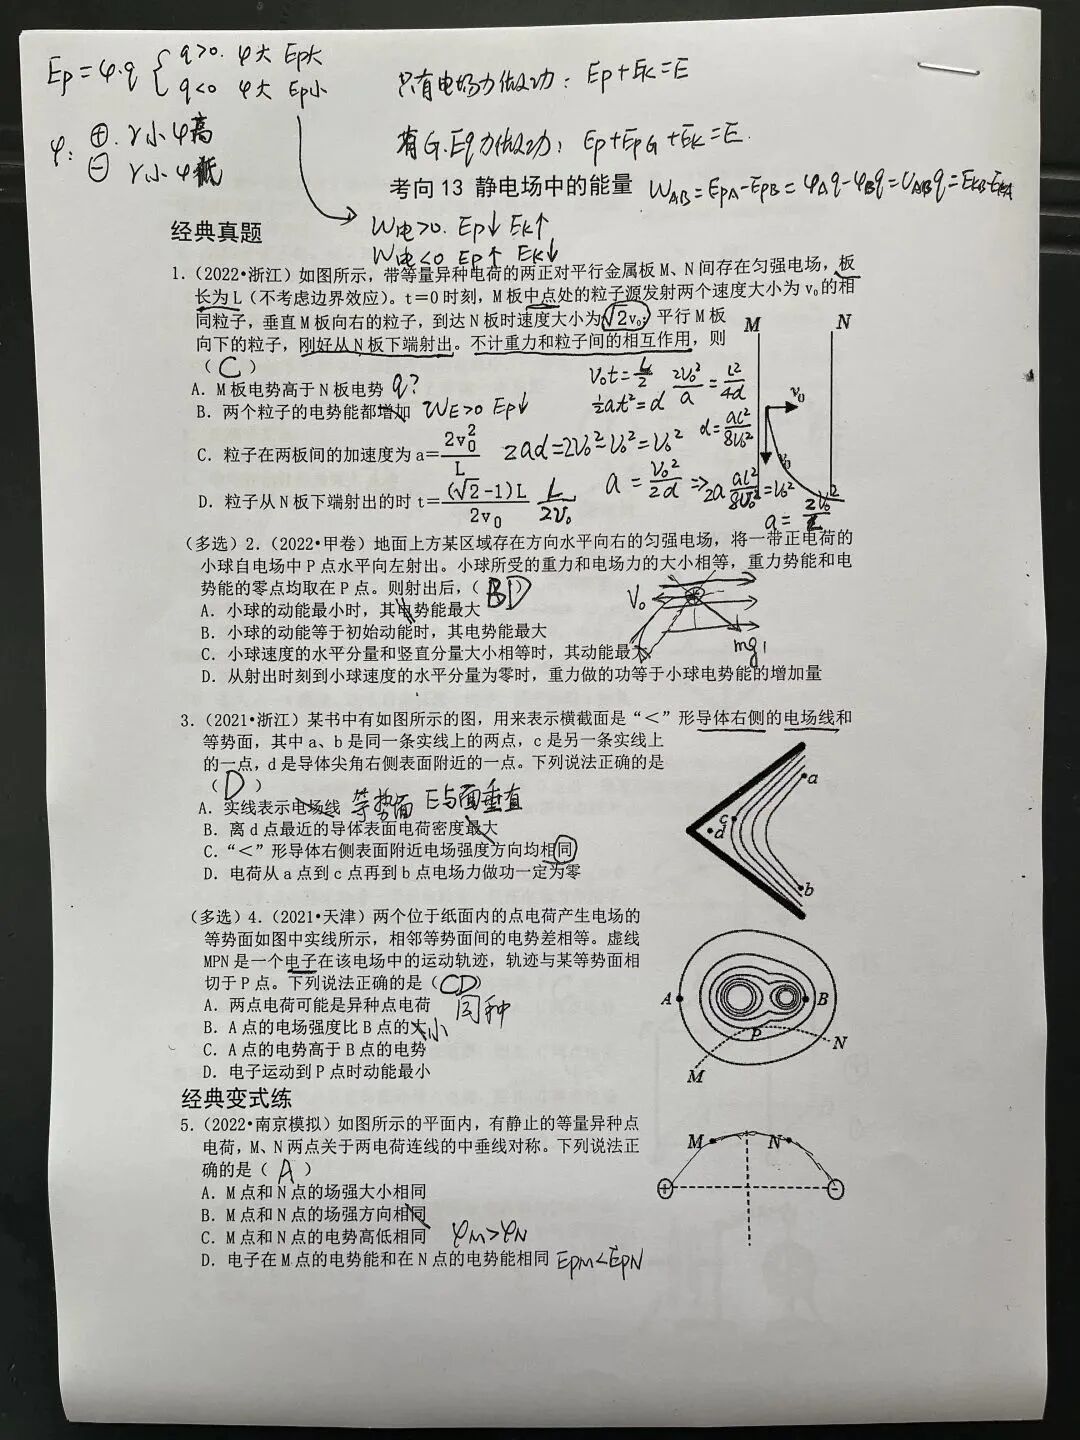 Ep=φ·q { q>0. φ大 Ep大
q<0 φ大 Ep小
只有电场力做功: Ep+Ek=E
φ: ⊕. r小φ高
⊖ r小φ低
有G.Eq力做功: Ep+EpG+Ek=E.
考向 13 静电场中的能量 WAB=EpA-EpB=φAq-φBq=UABq=EkB-EkA
经典真题
W电>0. Ep↓ Ek↑
W电<0 Ep↑ Ek↓
1.(2022•浙江)如图所示,带等量异种电荷的两正对平行金属板 M、N 间存在匀强电场,板
长为 L(不考虑边界效应)。t=0 时刻,M 板中点处的粒子源发射两个速度大小为 v₀的相
同粒子,垂直 M 板向右的粒子,到达 N 板时速度大小为√2v₀;平行 M 板
向下的粒子,刚好从 N 板下端射出。不计重力和粒子间的相互作用,则
( C )
A. M 板电势高于 N 板电势 q?
B. 两个粒子的电势能都增加 WE>0 Ep↓
C. 粒子在两板间的加速度为 a=2v₀²/L 2ad=2v₀²-v₀²=v₀²
D. 粒子从 N 板下端射出的时 t=(√2-1)L/2v₀ L/2v₀
v₀t=L/2 2v₀²/a=L²/4d
½at²=d d=aL²/8v₀²
a=v₀²/2d ⇒2a aL²/8v₀²=v₀²
a=2v₀²/L
M N
v₀
v₀
(多选) 2.(2022•甲卷)地面上方某区域存在方向水平向右的匀强电场,将一带正电荷的
小球自电场中 P 点水平向左射出。小球所受的重力和电场力的大小相等,重力势能和电
势能的零点均取在 P 点。则射出后,( BD )
A. 小球的动能最小时,其电势能最大
B. 小球的动能等于初始动能时,其电势能最大
C. 小球速度的水平分量和竖直分量大小相等时,其动能最大
D. 从射出时刻到小球速度的水平分量为零时,重力做的功等于小球电势能的增加量
V₀
mg
3.(2021•浙江)某书中有如图所示的图,用来表示横截面是“<”形导体右侧的电场线和
等势面,其中 a、b 是同一条实线上的两点,c 是另一条实线上
的一点,d 是导体尖角右侧表面附近的一点。下列说法正确的是
( D )
A. 实线表示电场线 等势面 E与面垂直
B. 离 d 点最近的导体表面电荷密度最大
C.“<”形导体右侧表面附近电场强度方向均相同
D. 电荷从 a 点到 c 点再到 b 点电场力做功一定为零
a
c
d
b
(多选) 4.(2021•天津)两个位于纸面内的点电荷产生电场的
等势面如图中实线所示,相邻等势面间的电势差相等。虚线
MPN 是一个电子在该电场中的运动轨迹,轨迹与某等势面相
切于 P 点。下列说法正确的是( CD )
A. 两点电荷可能是异种点电荷 同种
B. A 点的电场强度比 B 点的大 小
C. A 点的电势高于 B 点的电势
D. 电子运动到 P 点时动能最小
A B
P N
M
经典变式练
5.(2022•南京模拟)如图所示的平面内,有静止的等量异种点
电荷,M、N 两点关于两电荷连线的中垂线对称。下列说法正
确的是( A )
A. M 点和 N 点的场强大小相同
B. M 点和 N 点的场强方向相同
C. M 点和 N 点的电势高低相同 φM>φN
D. 电子在 M 点的电势能和在 N 点的电势能相同 EpM<EpN
M N
+ -